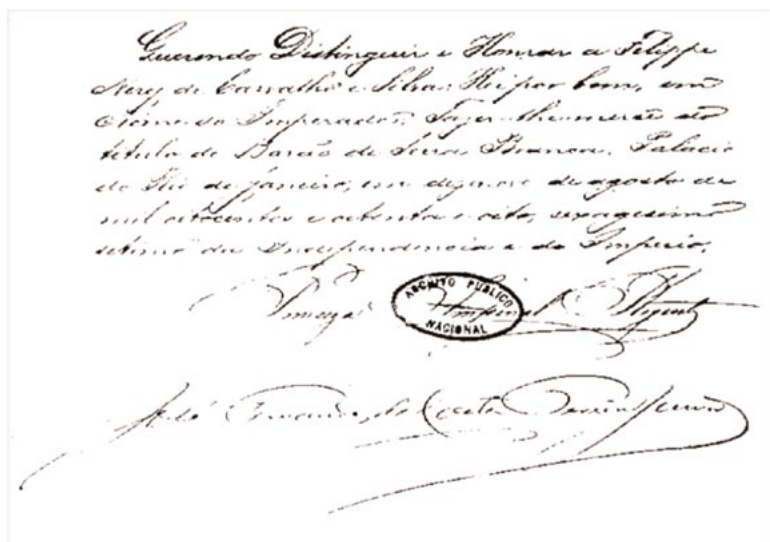 Querendo Distinguir e Honrar a Felippe
Nery de Carvalho e Silva: Hei por bem, em
Nome do Imperador, Fazer-lhe mercê do
titulo de Barão de Serra Branca. Palacio
do Rio de Janeiro, em dezenove de agosto de
mil oitocentos e oitenta e oito, sexagesimo
setimo da Independencia e do Imperio.
Princeza Imperial Regente
ARCHIVO PUBLICO
NACIONAL
José Fernandes da Costa Pereira Junior